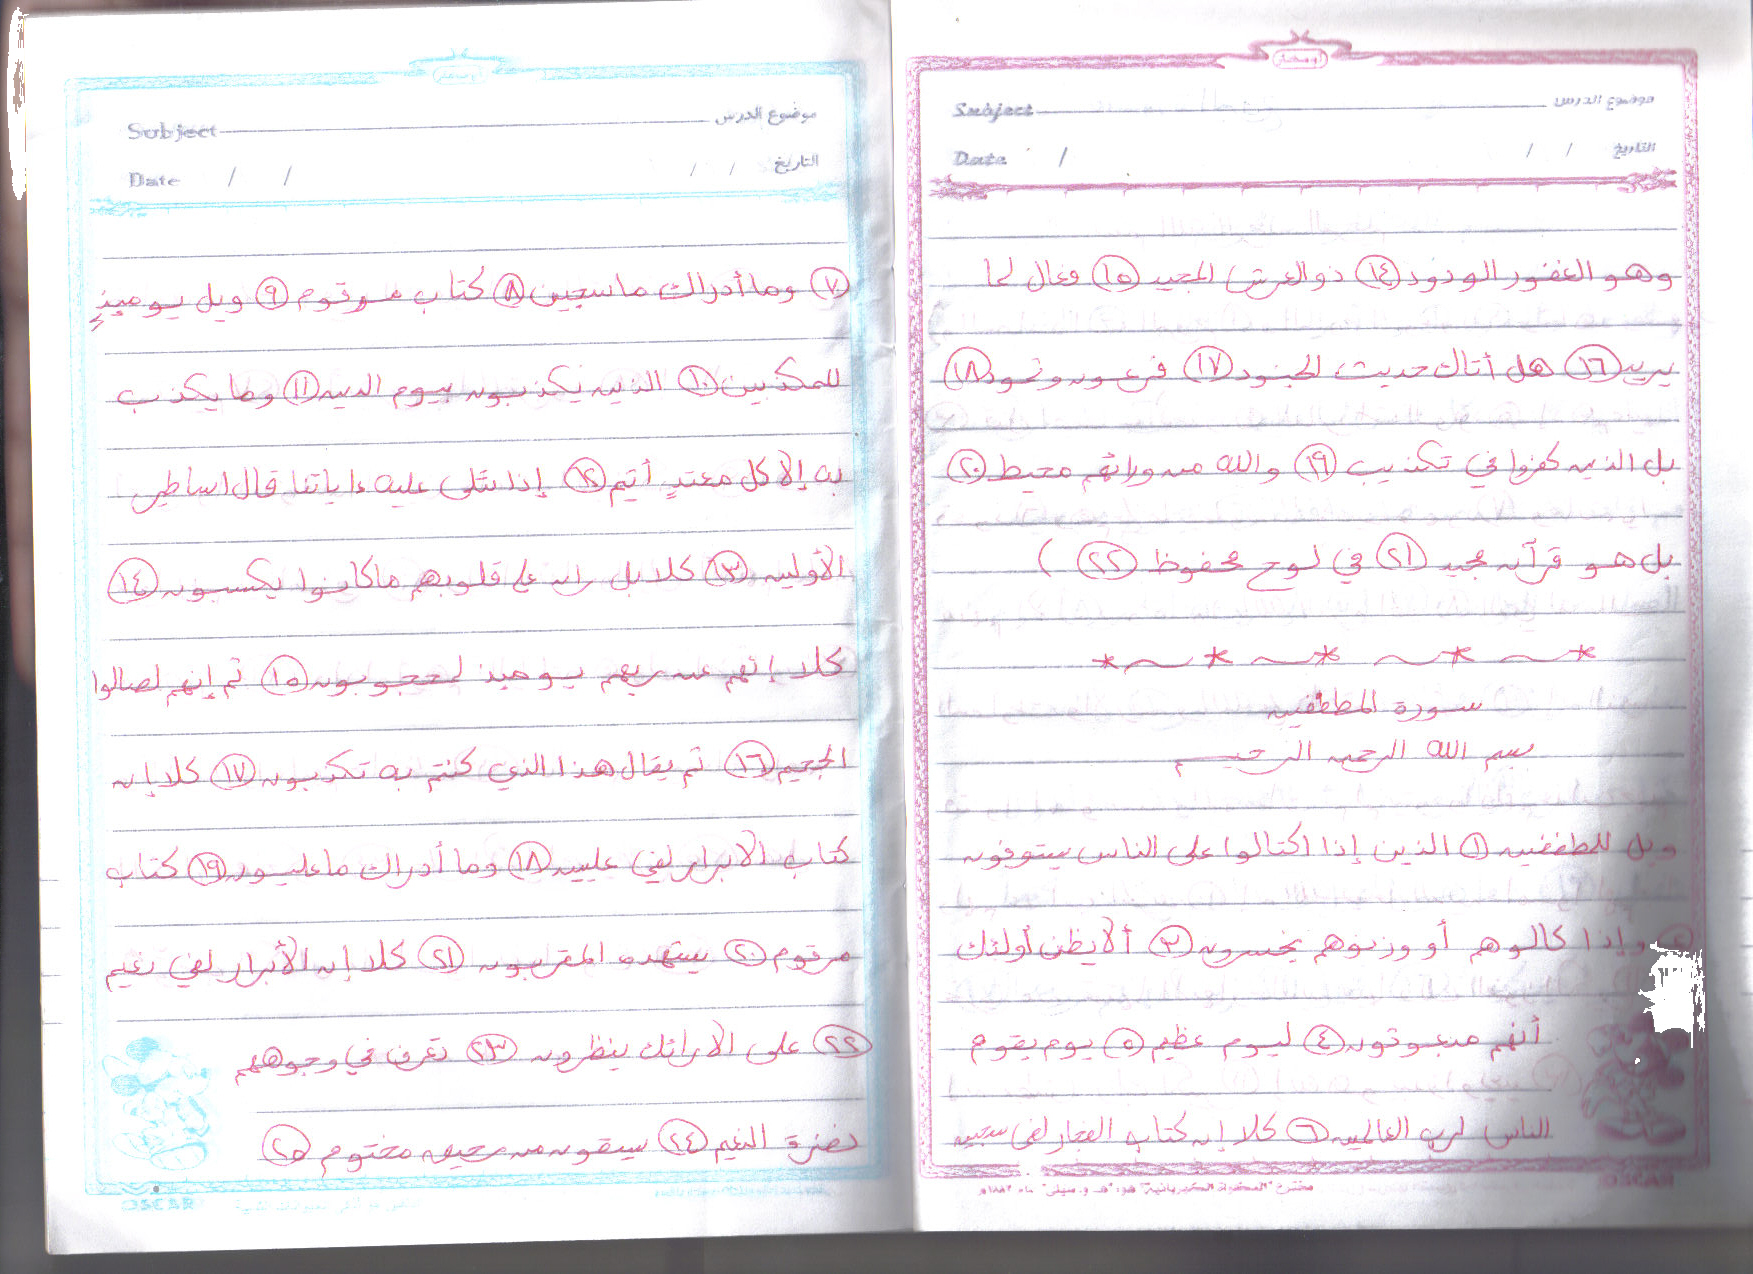 موضوع الدرس Subject
التاريخ / / Date /
وهو الغفور الودود ١٤ ذو العرش المجيد ١٥ فعال لما
يريد ١٦ هل أتاك حديث الجنود ١٧ فرعون وثمود ١٨
بل الذين كفروا في تكذيب ١٩ والله من ورائهم محيط ٢٠
بل هو قرآن مجيد ٢١ في لوح محفوظ ٢٢ )
*~*~*~*~*
سورة المطففين
بسم الله الرحمن الرحيم
ويل للمطففين ١ الذين إذا اكتالوا على الناس يستوفون
وإذا كالوهم أو وزنوهم يخسرون ٣ ألا يظن أولئك
أنهم مبعوثون ٤ ليوم عظيم ٥ يوم يقوم
الناس لرب العالمين ٦ كلا إن كتاب الفجار لفي سجين
مخترع "المكواة الكهربائية" هو: "هـ. و. سيلي" عام ١٨٨٢م
OSCAR
موضوع الدرس Subject
التاريخ / / Date / /
٧ وما أدراك ما سجين ٨ كتاب مرقوم ٩ ويل يومئذٍ
للمكذبين ١٠ الذين يكذبون بيوم الدين ١١ وما يكذب
به إلا كل معتدٍ أثيم ١٢ إذا تتلى عليه ءاياتنا قال اساطير
الأولين ١٣ كلا بل ران على قلوبهم ما كانوا يكسبون ١٤
كلا إنهم عن ربهم يومئذ لمحجوبون ١٥ ثم إنهم لصالوا
الجحيم ١٦ ثم يقال هذا الذي كنتم به تكذبون ١٧ كلا إن
كتاب الابرار لفي عليين ١٨ وما أدراك ما عليون ١٩ كتاب
مرقوم ٢٠ يشهده المقربون ٢١ كلا إن الأبرار لفي نعيم
٢٢ على الارائك ينظرون ٢٣ تعرف في وجوههم
نضرة النعيم ٢٤ يسقون من رحيق مختوم ٢٥
OSCAR